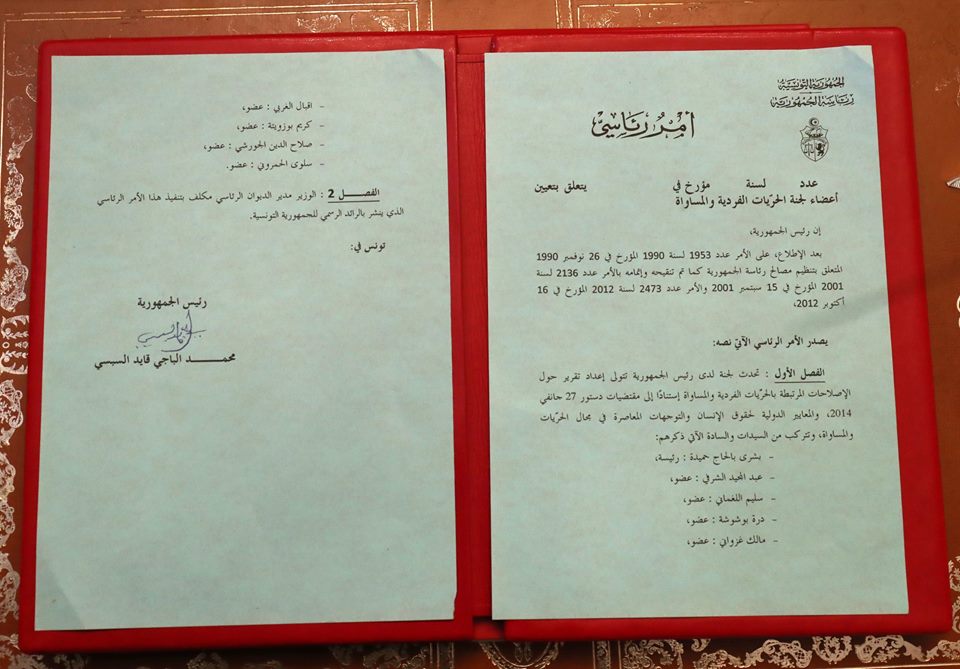 الجمهورية التونسية
رئاسة الجمهورية
أمر رئاسي
عدد لسنة مؤرخ في يتعلق بتعيين
أعضاء لجنة الحرّيات الفردية والمساواة
إن رئيس الجمهورية،
بعد الإطلاع، على الأمر عدد 1953 لسنة 1990 المؤرخ في 26 نوفمبر 1990
المتعلق بتنظيم مصالح رئاسة الجمهورية كما تم تنقيحه وإتمامه بالأمر عدد 2136 لسنة
2001 المؤرخ في 15 سبتمبر 2001 والأمر عدد 2473 لسنة 2012 المؤرخ في 16
أكتوبر 2012،
يصدر الأمر الرئاسي الآتي نصه:
الفصل الأول : تحدث لجنة لدى رئيس الجمهورية تتولى إعداد تقرير حول
الإصلاحات المرتبطة بالحرّيات الفردية والمساواة إستنادًا إلى مقتضيات دستور 27 جانفي
2014، والمعايير الدولية لحقوق الإنسان والتوجهات المعاصرة في مجال الحرّيات
والمساواة، وتتركب من السيدات والسادة الآتي ذكرهم:
- بشرى بالحاج حميدة : رئيسة،
- عبد المجيد الشرفي : عضو،
- سليم اللغماني : عضو،
- درة بوشوشة : عضو،
- مالك غزواني : عضو،
- اقبال الغربي : عضو،
- كريم بوزويتة : عضو،
- صلاح الدين الجورشي : عضو،
- سلوى الحمروني : عضو.
الفصل 2 : الوزير مدير الديوان الرئاسي مكلف بتنفيذ هذا الأمر الرئاسي
الذي ينشر بالرائد الرسمي للجمهورية التونسية.
تونس في:
رئيس الجمهورية
محمد الباجي قايد السبسي